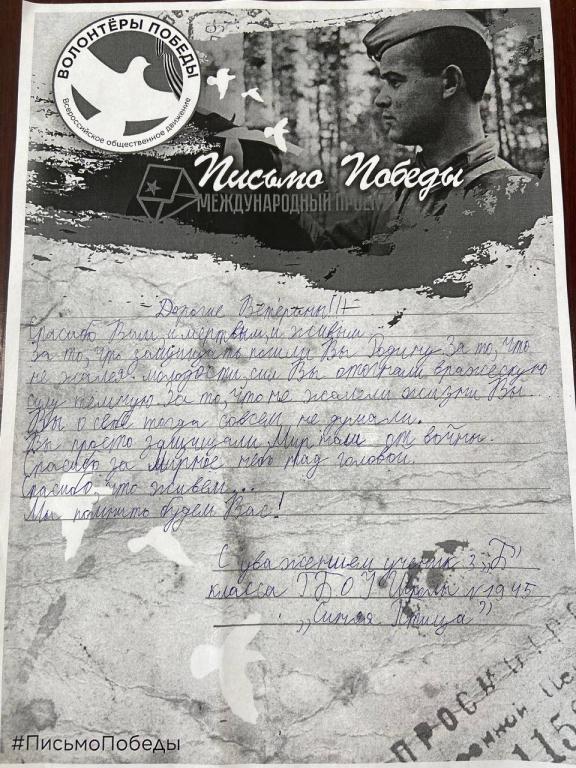 ВОЛОНТЁРЫ ПОБЕДЫ
Всероссийское общественное движение
Письмо Победы
МЕЖДУНАРОДНЫЙ ПРОЕКТ
Дорогие Ветераны!
Спасибо Вам и мертвым и живым
За то, что защищать пошли Вы Родину За то, что
не жалея молодости сил Вы отогнали вражескую
силу темную За то что не жалели жизни Вы
Вы о себе тогда совсем не думали.
Вы просто защищали Мир от войны.
Спасибо за мирное небо над головой.
Спасибо, что живем...
Мы помнить будем Вас!
С уважением ученик 3 „Б"
класса ГБОУ Школы №1945
„Синяя Птица"
#ПисьмоПобеды
115